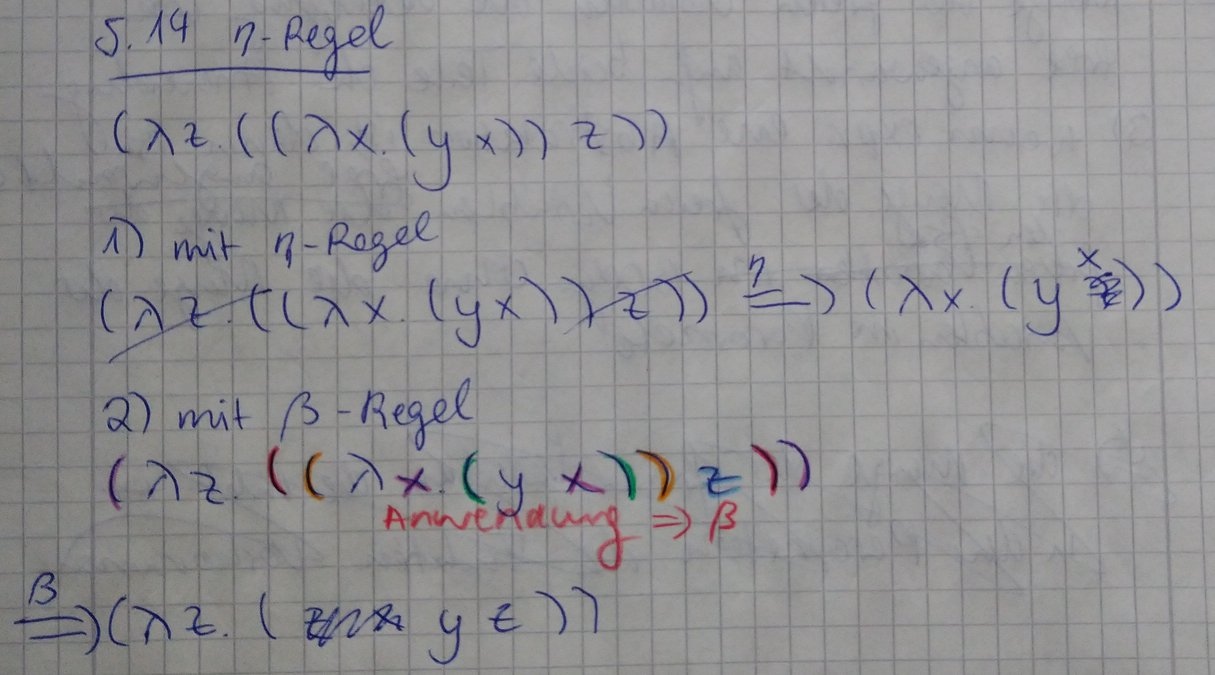 5.14 η-Regel
(λz.((λx.(y x)) z))
1) mit η-Regel
(λz.((λx.(yx)) z)) =η=> (λx.(y x))
2) mit β-Regel
(λz.((λx.(y x)) z))
Anwendung => β
=β=> (λz.( y z))